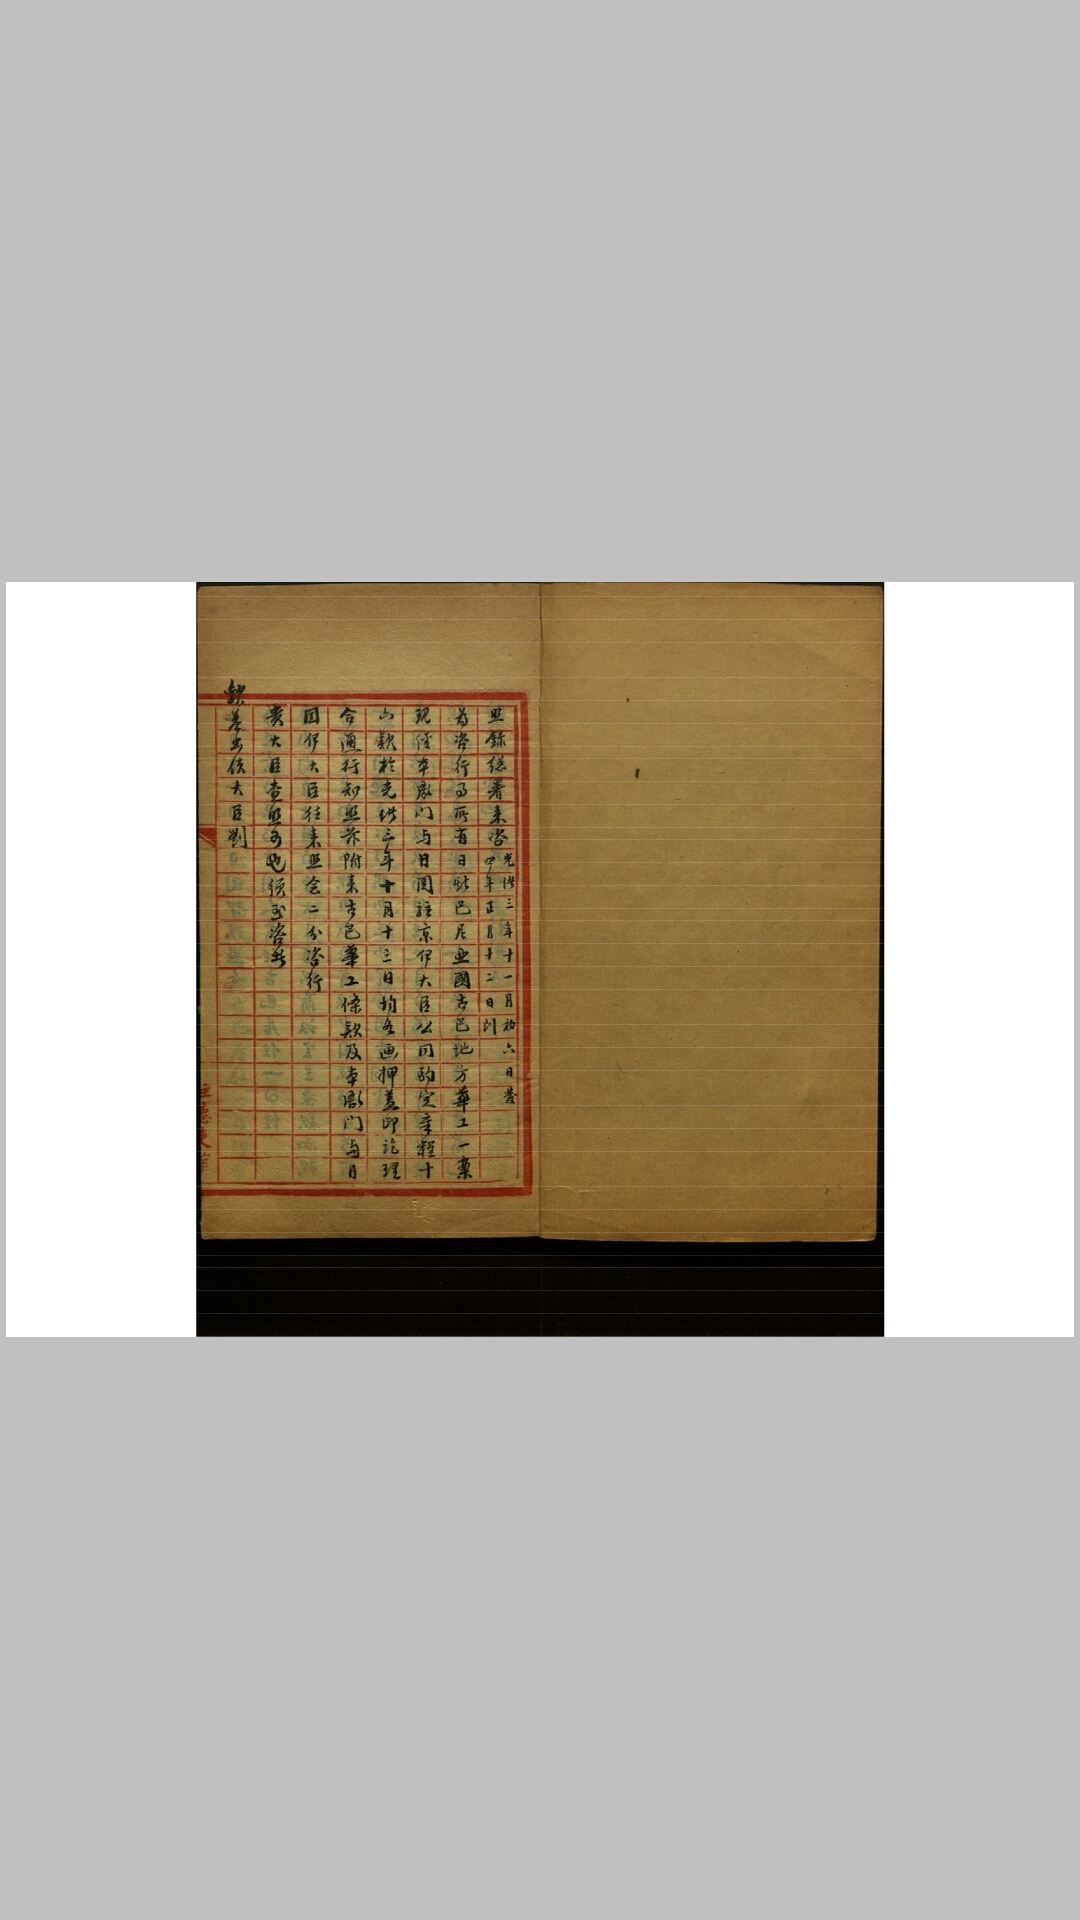 照錄總署來咨光緒三年十一月初六日發
四年正月十二日到
為咨行事所有日斯巴尼亜國古巴地方華工一案
現經本衙門与日國駐京伊大臣公同酌定章程十
六款於光緒三年十月十三日均各画押盖印訖理
合通行知照茲附去古巴華工條款及本衙門与日
国伊大臣往來照会二分咨行
貴大臣查照可也須至咨者
欽差出使大臣劉